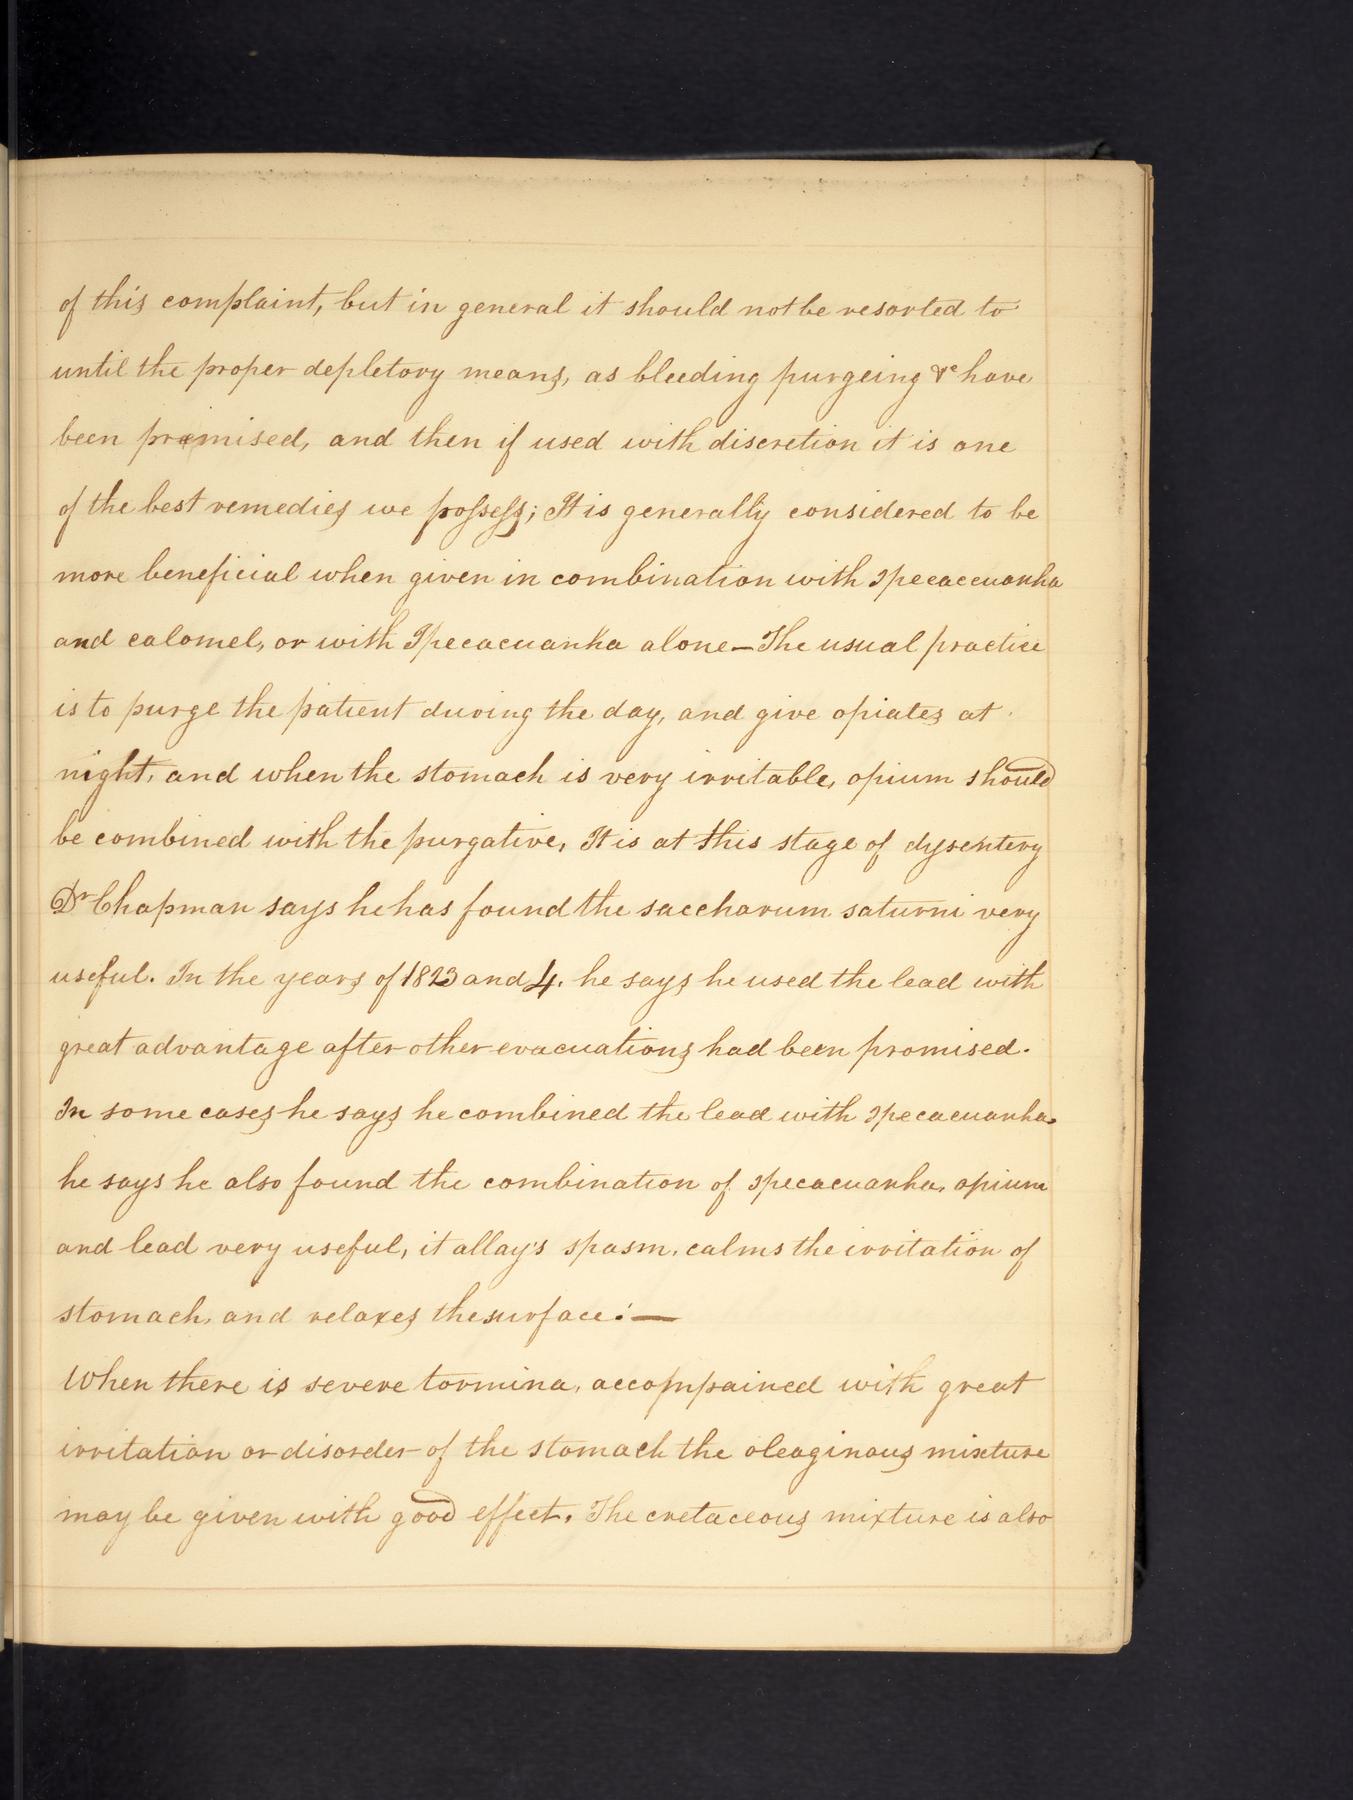 of this complaint, but in general it should not be resorted to
until the proper depletory means, as bleeding purgeing &c have
been premised, and then if used with discretion it is one
of the best remedies we possess; It is generally considered to be
more beneficial when given in combination with Ipecaccuanha
and calomel, or with Ipecacuanha alone — The usual practice
is to purge the patient during the day, and give opiates at
night, and when the stomach is very irritable, opium should
be combined with the purgative, It is at this stage of dysentery
Dr Chapman says he has found the saccharum saturni very
useful. In the years of 1823 and 4. he says he used the lead with
great advantage after other evacuations had been promised.
In some cases he says he combined the lead with Ipecacuanha.
he says he also found the combination of Ipecacuanha, opium
and lead very useful, it allay's spasm, calms the irritation of
stomach, and relaxes the surface: —
When there is severe tormina, accompained with great
irritation or disorder of the stomach the oleaginous mixture
may be given with good effect, The cretaceous mixture is also